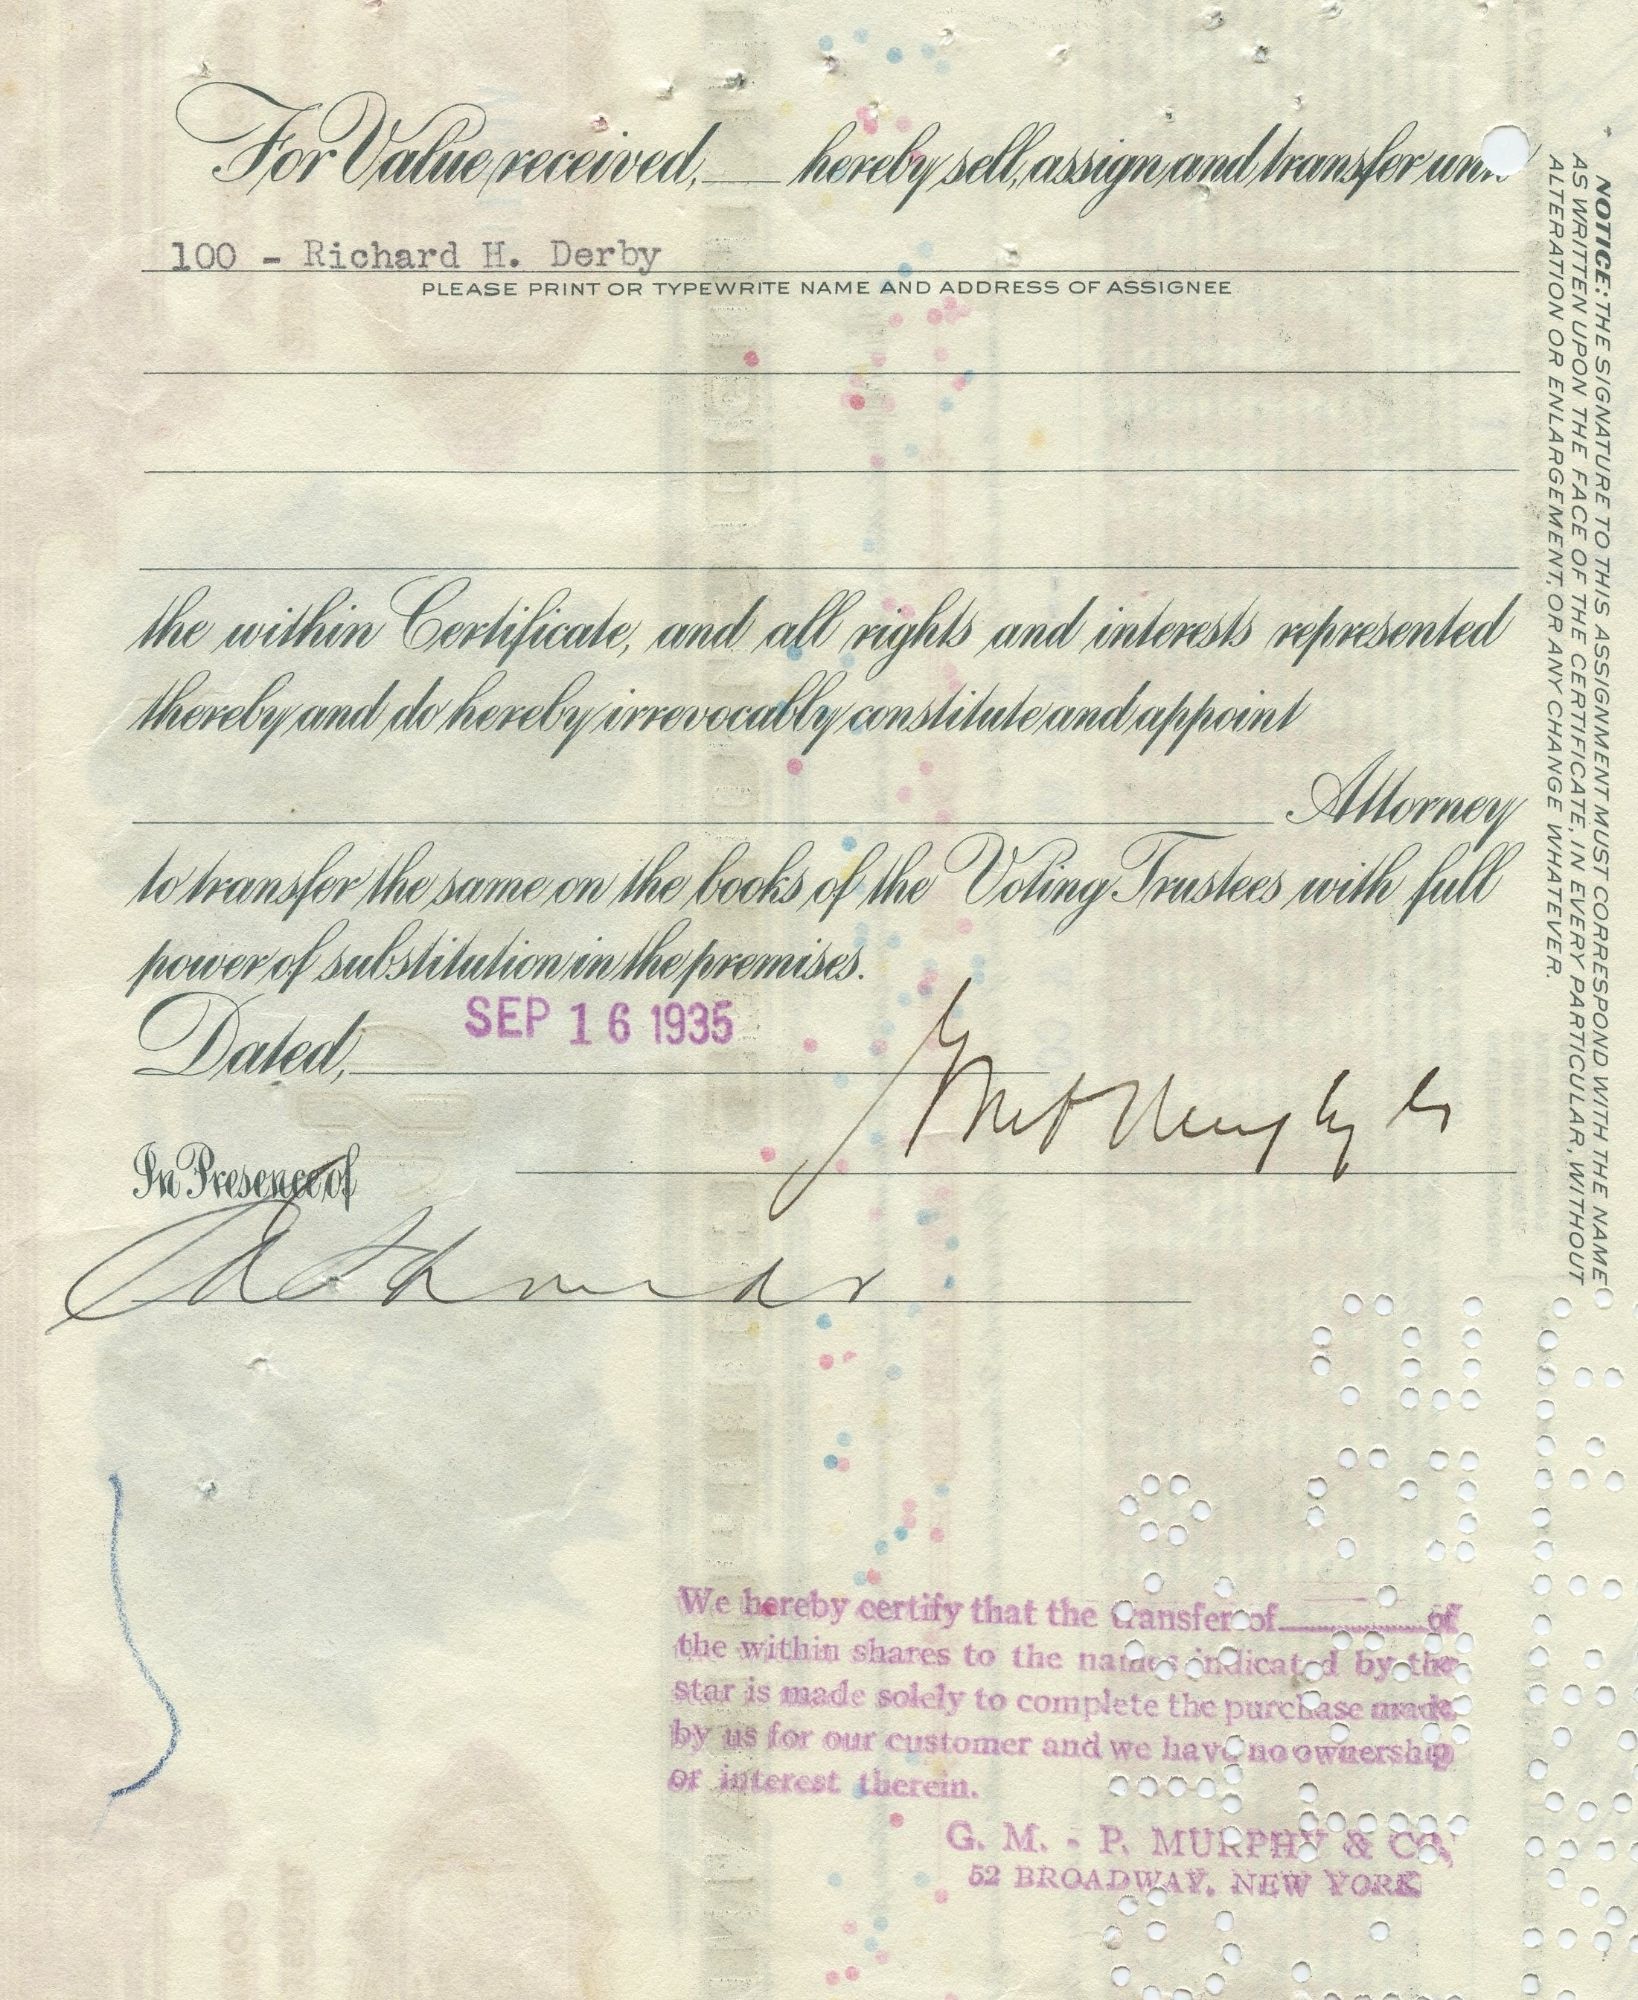 For Value received, hereby sell, assign and transfer unto
100 - Richard H. Derby
PLEASE PRINT OR TYPEWRITE NAME AND ADDRESS OF ASSIGNEE
the within Certificate, and all rights and interests represented
thereby and do hereby irrevocably constitute and appoint
Attorney
to transfer the same on the books of the Voting Trustees with full
power of substitution in the premises.
Dated, SEP 16 1935
In Presence of
We hereby certify that the transfer of of
the within shares to the names indicated by the
star is made solely to complete the purchase made
by us for our customer and we have no ownership
or interest therein.
G. M. - P. MURPHY & CO.
52 BROADWAY, NEW YORK
NOTICE: THE SIGNATURE TO THIS ASSIGNMENT MUST CORRESPOND WITH THE NAME
AS WRITTEN UPON THE FACE OF THE CERTIFICATE, IN EVERY PARTICULAR, WITHOUT
ALTERATION OR ENLARGEMENT, OR ANY CHANGE WHATEVER.